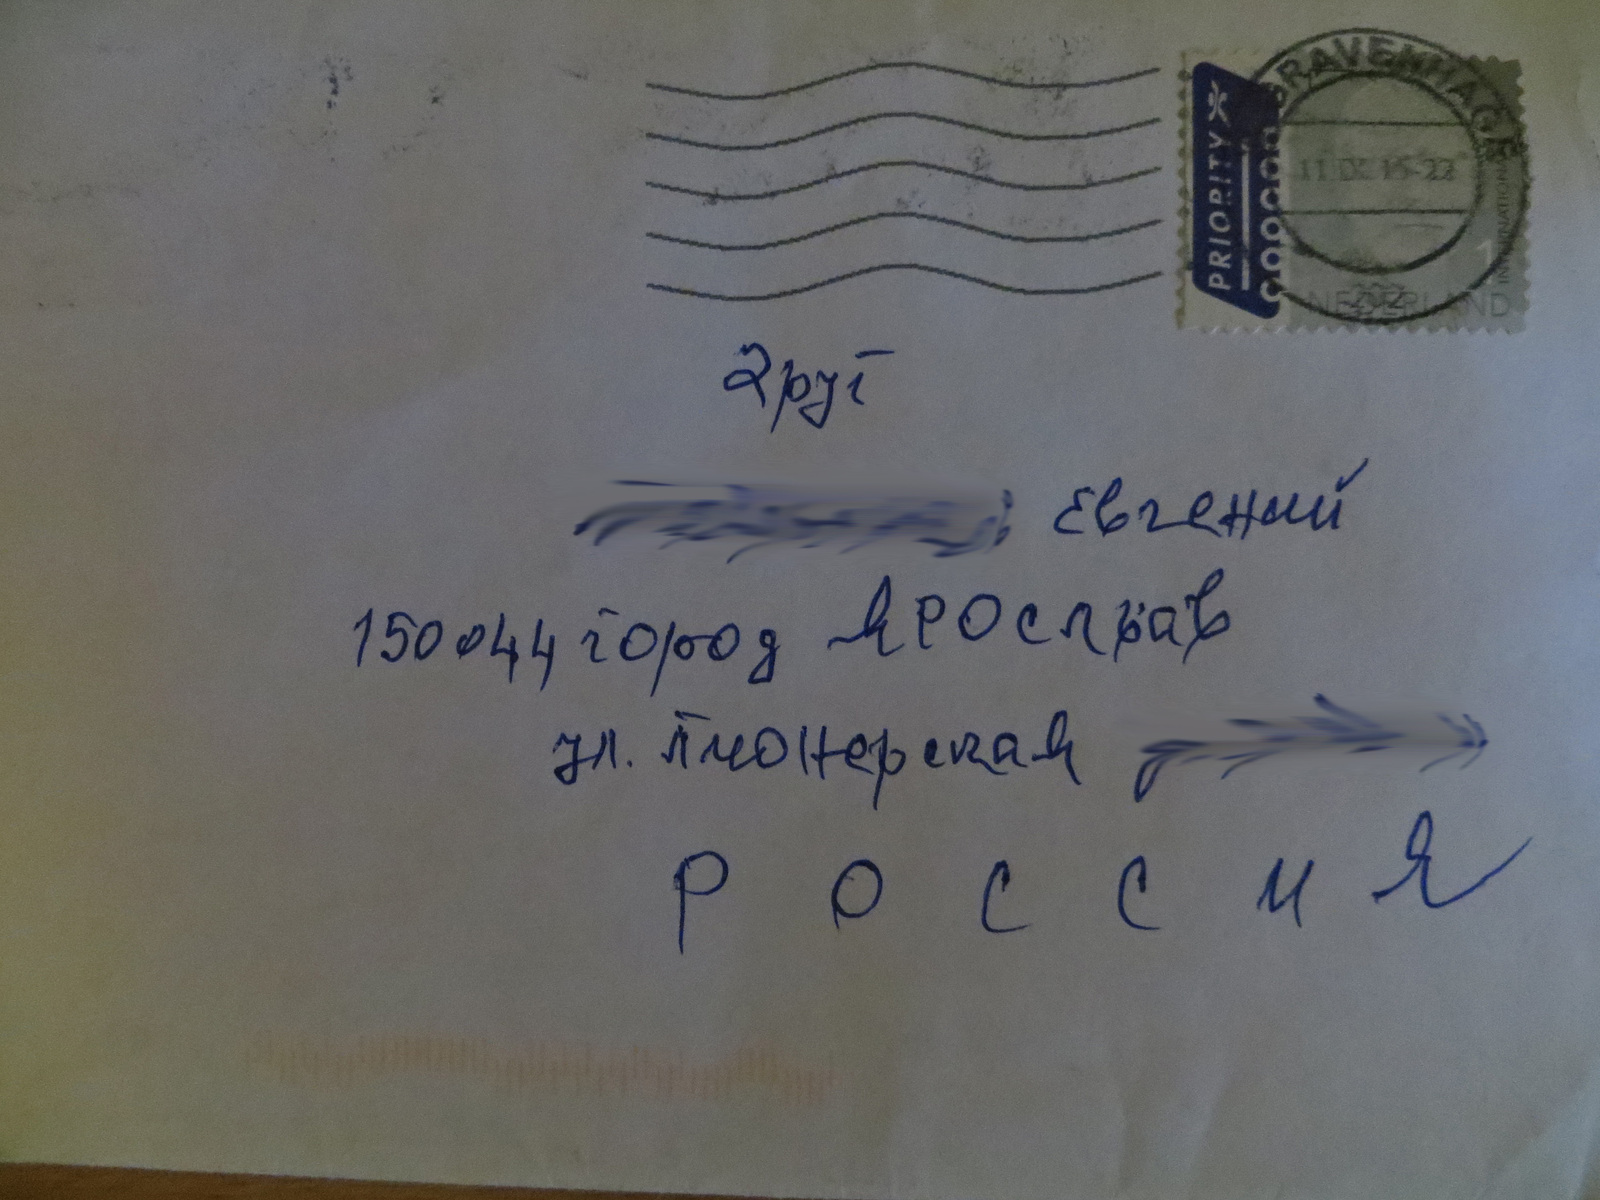 PRIORITY
GRAVENHAGE
11 IX 15-22
INTERNATIONAL
1
NEDERLAND
Друг
Евгений
150044 город ЯРОСлав
ул. Пионерская
РОССИЯ